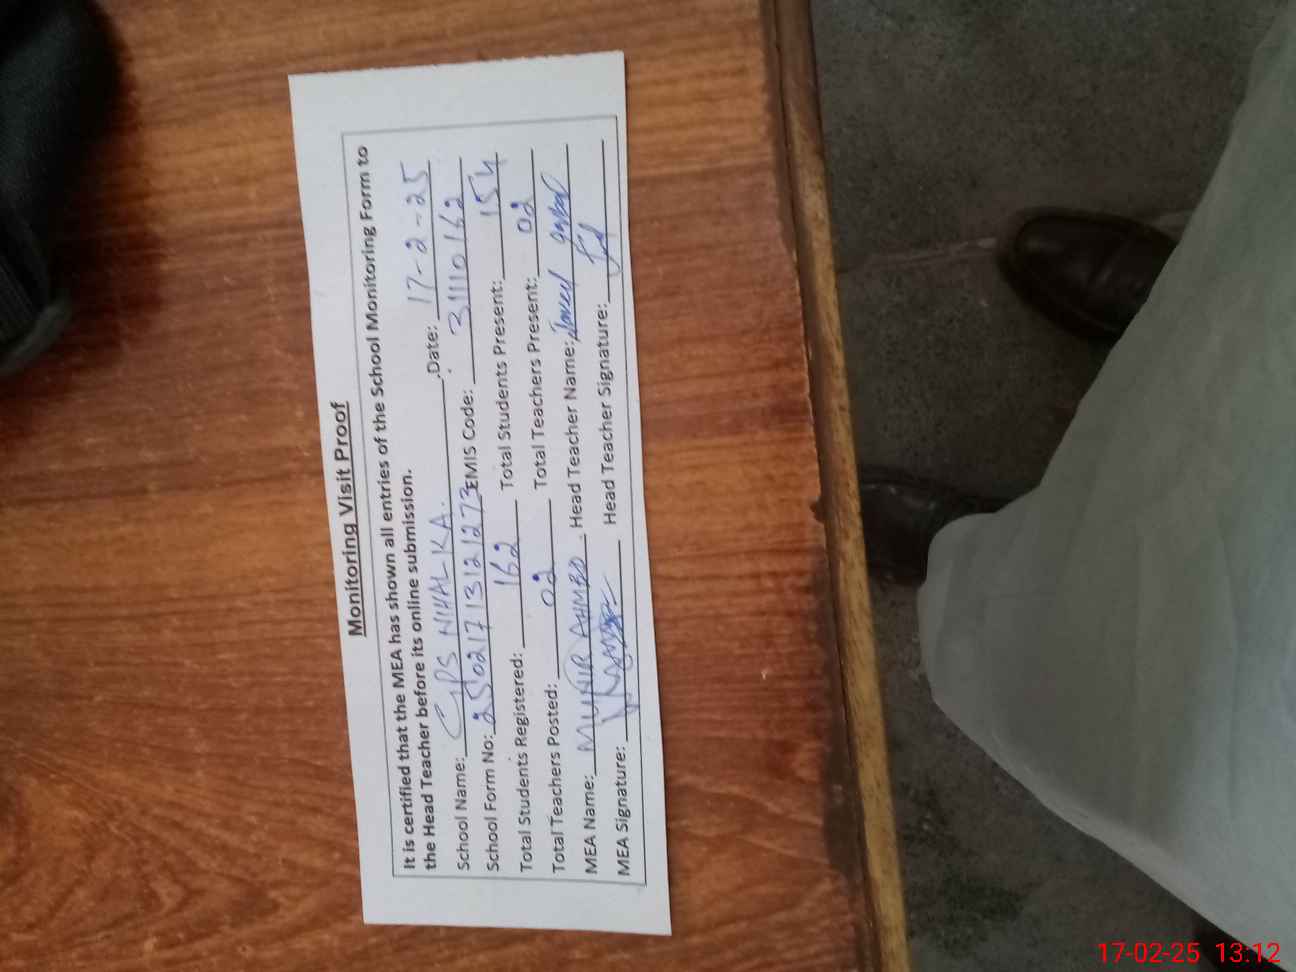 Monitoring Visit Proof
It is certified that the MEA has shown all entries of the School Monitoring Form to
the Head Teacher before its online submission.
School Name: GPS NIHALKA. Date: 17-2-25
School Form No: 25021713121273 EMIS Code: 31110162
Total Students Registered: 162 Total Students Present: 154
Total Teachers Posted: 02 Total Teachers Present: 02
MEA Name: MUNIR AHMED. Head Teacher Name: Javed
MEA Signature: Head Teacher Signature:
17-02-25 13:12